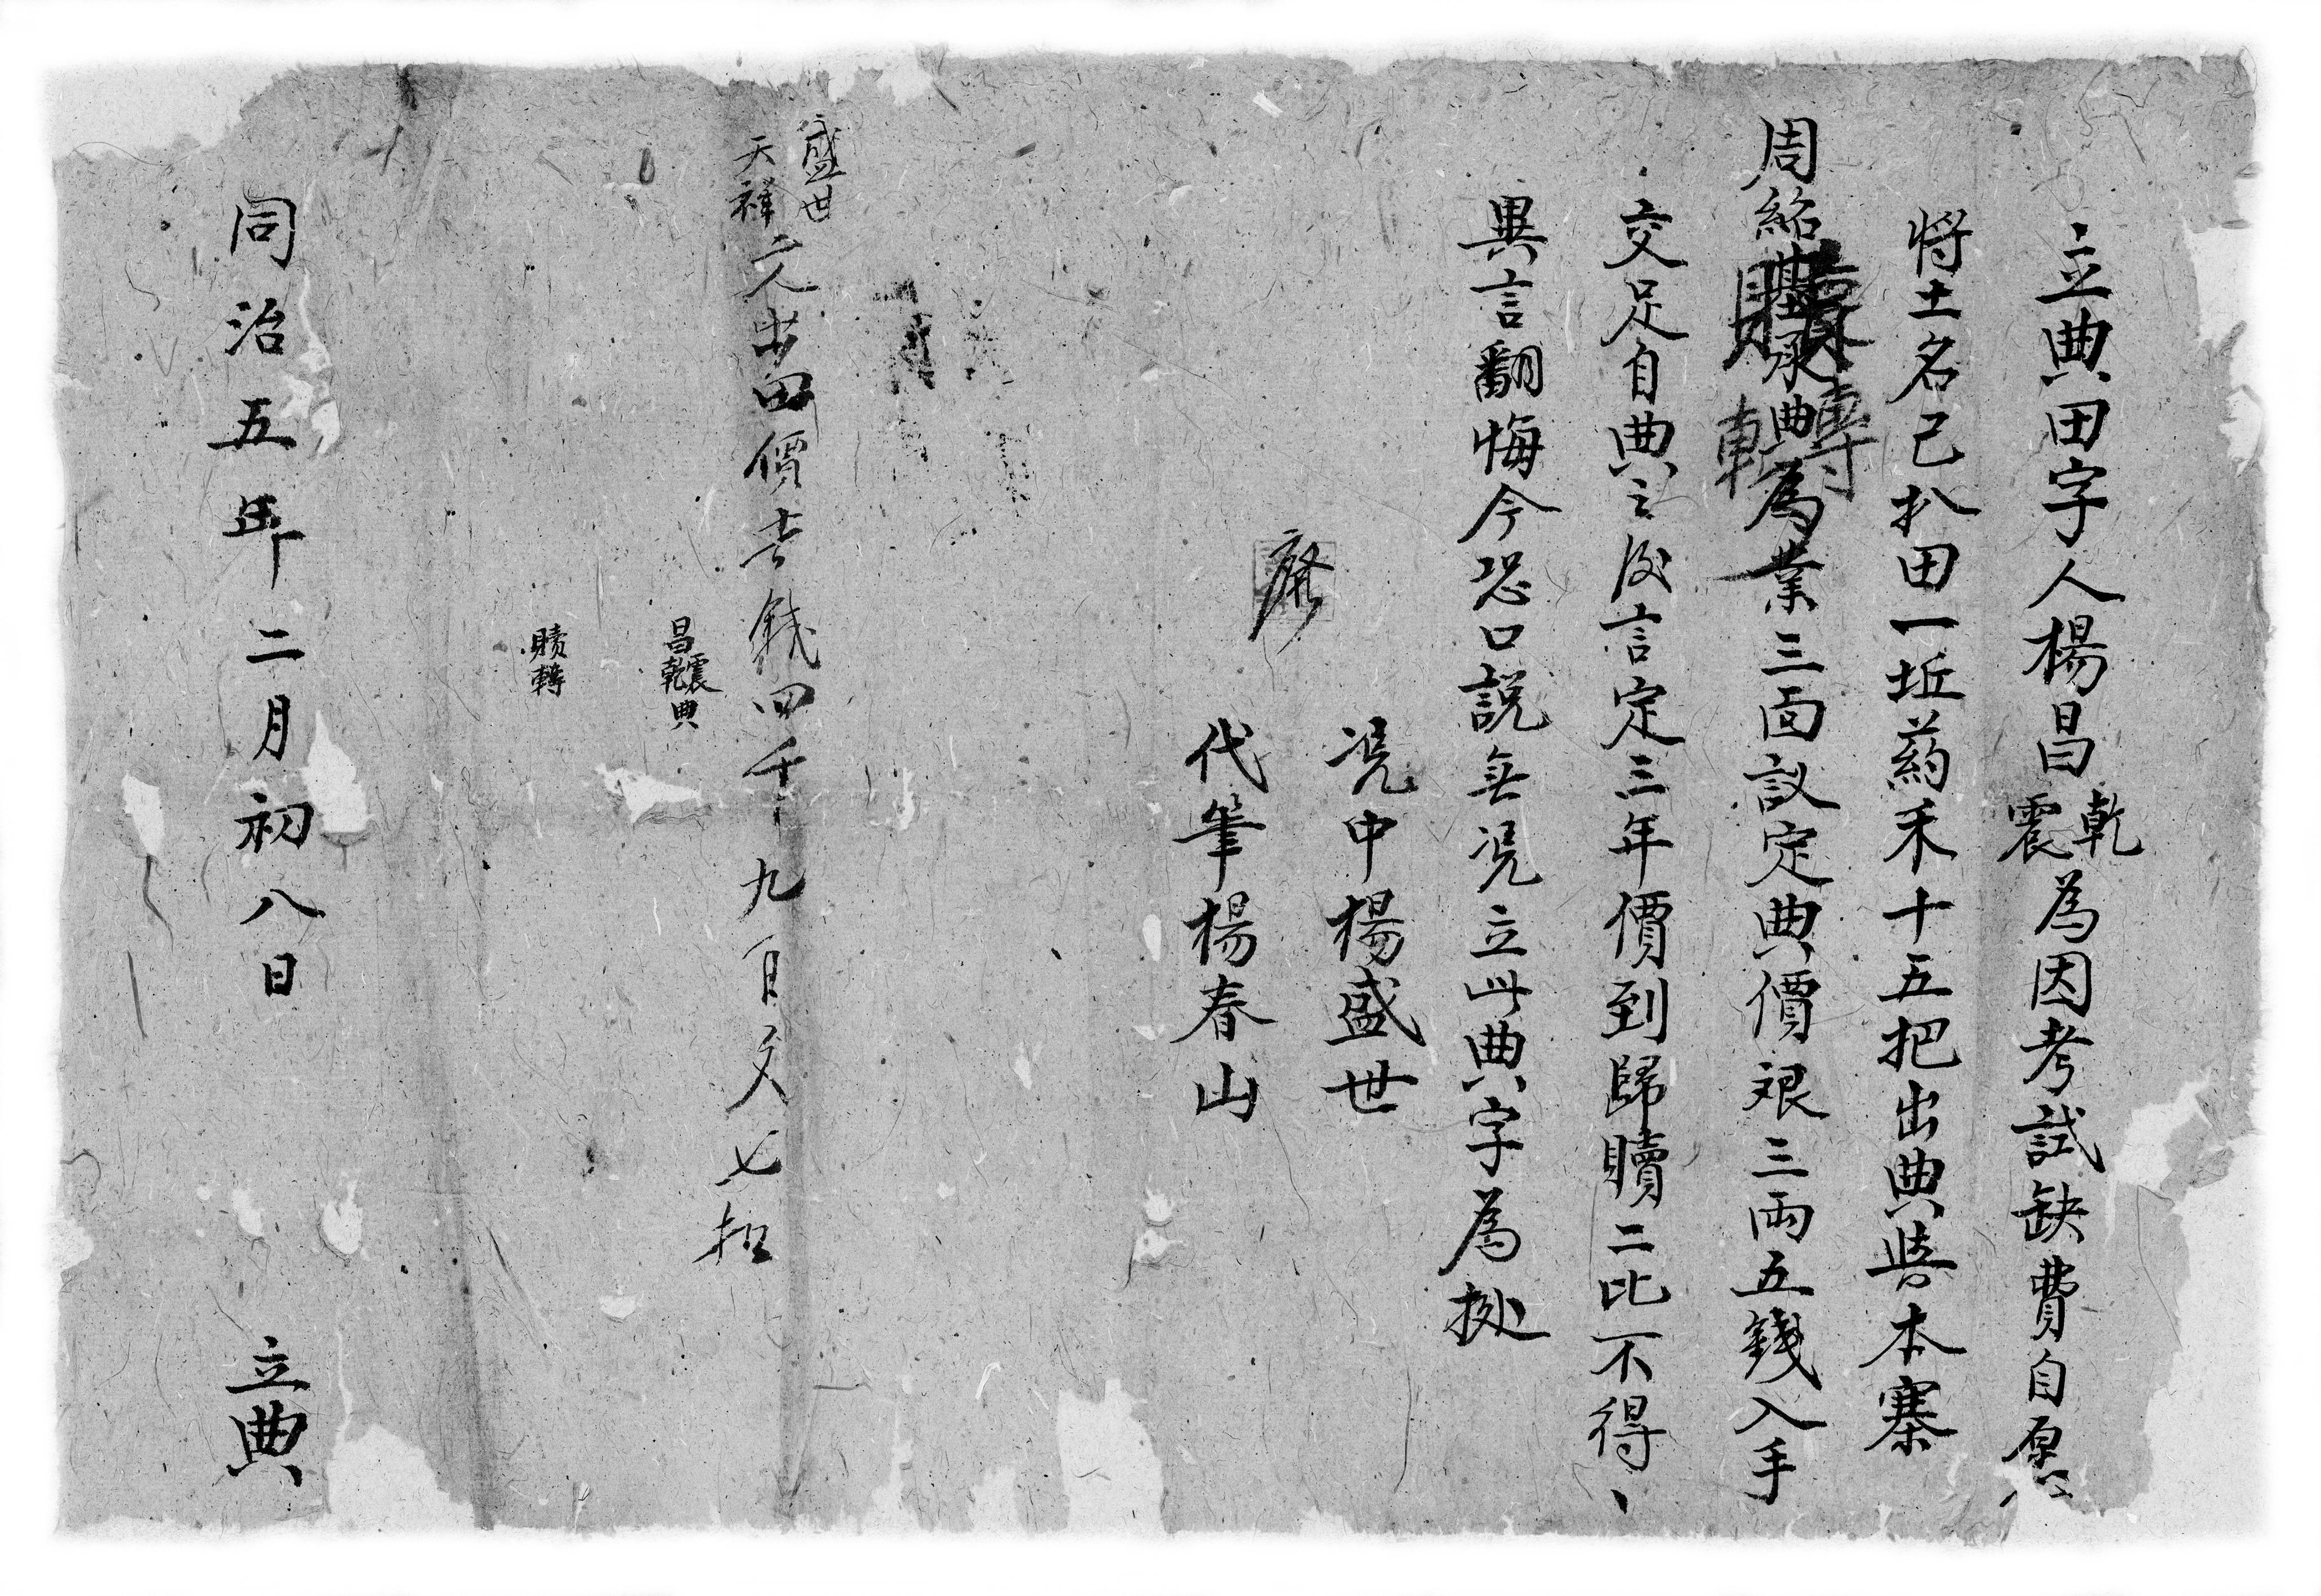 立典田字人楊昌乾震為因考試缺費自愿
将土名己扒田一坵葯禾十五把出典與本寨
周紹基承典為業三面議定典價艮三兩五錢入手
交足自典之後言定三年價到歸贖二比不得
異言翻悔今恐口說無凭立此典字為拠
凭中楊盛世
代筆楊春山
贖轉
盛世
天祥 田價 錢四千九百文
昌乾震典
贖轉
同治五年二月初八日 立典